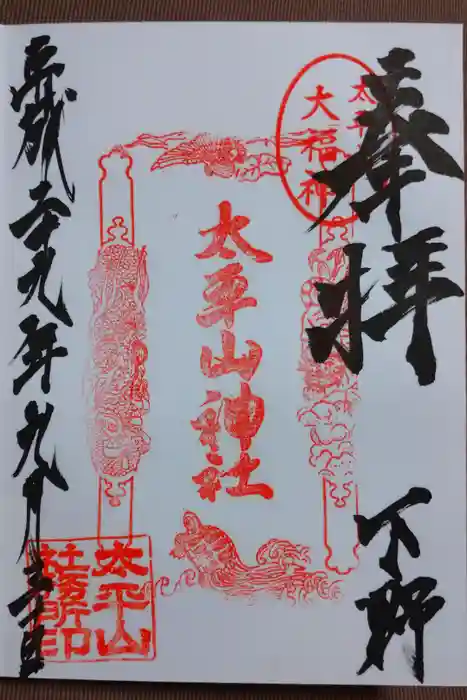 奉拝 下野
太平
大福神
太平山神社
平成二十九年九月 日
太平山
社務所印